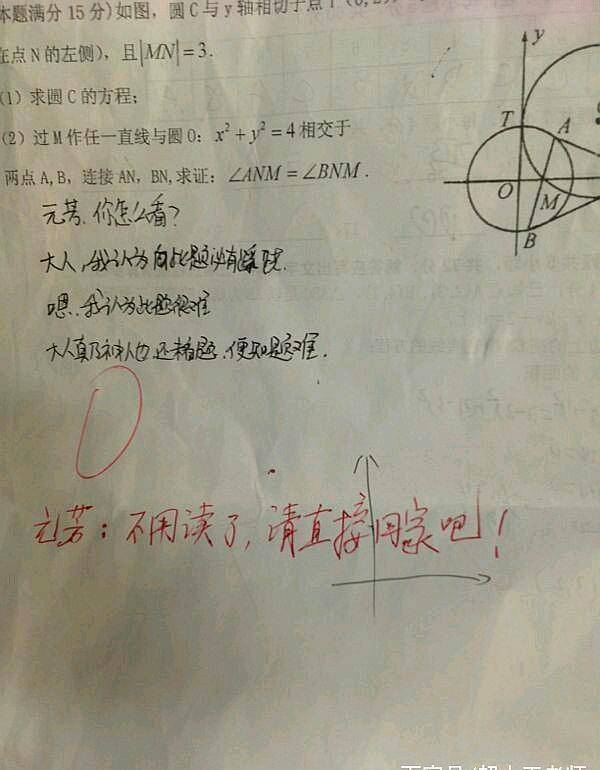 本题满分15分)如图，圆C与y轴相切于点T(0,2)，
在点N的左侧)，且|MN|=3.
(1) 求圆C的方程;
(2) 过M作任一直线与圆O: x²+y²=4相交于
两点A,B，连接AN，BN,求证：∠ANM=∠BNM.
y
T
A
O
M
B
元芳，你怎么看?
大人，我认为此题必有蹊跷.
嗯，我认为此题很难
大人真乃神人也，还看题，便知是难.
0
元芳：不用读了，请直接回家吧!